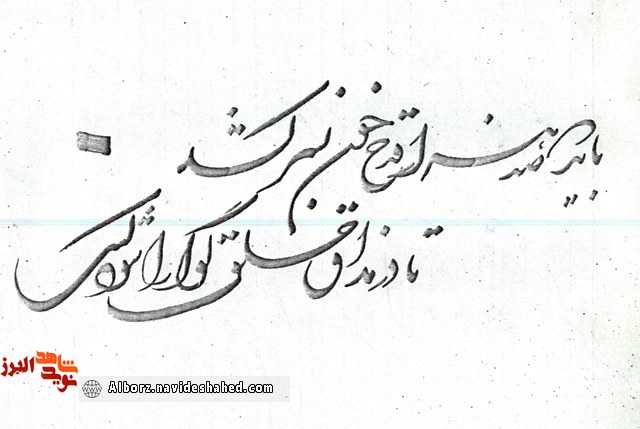 باید صد هزار قدح خون بسر کشد
تا در مذاق خلق گوارا شود کسی
نوید شاهد البرز
Alborz.navideshahed.com